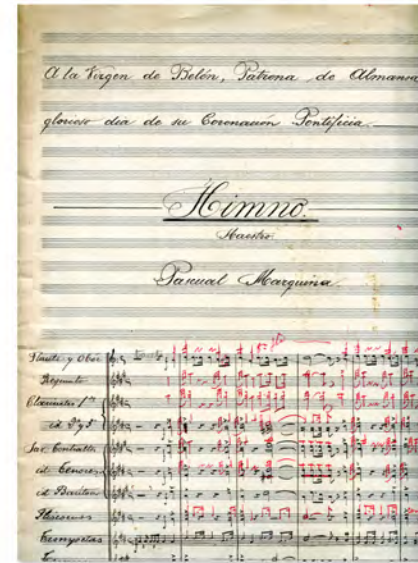 A la Virgen de Belén, Patrona de Almansa
glorioso dia de su Coronación Pontificia.
Himno.
Maestro:
Pascual Marquina
Flauta y Oboe
Requinto
Clarinetes 1os
id 2os y 3os
Sax. Contraltos
id. Tenores
id Barítono
Fliscornos
Trompetas